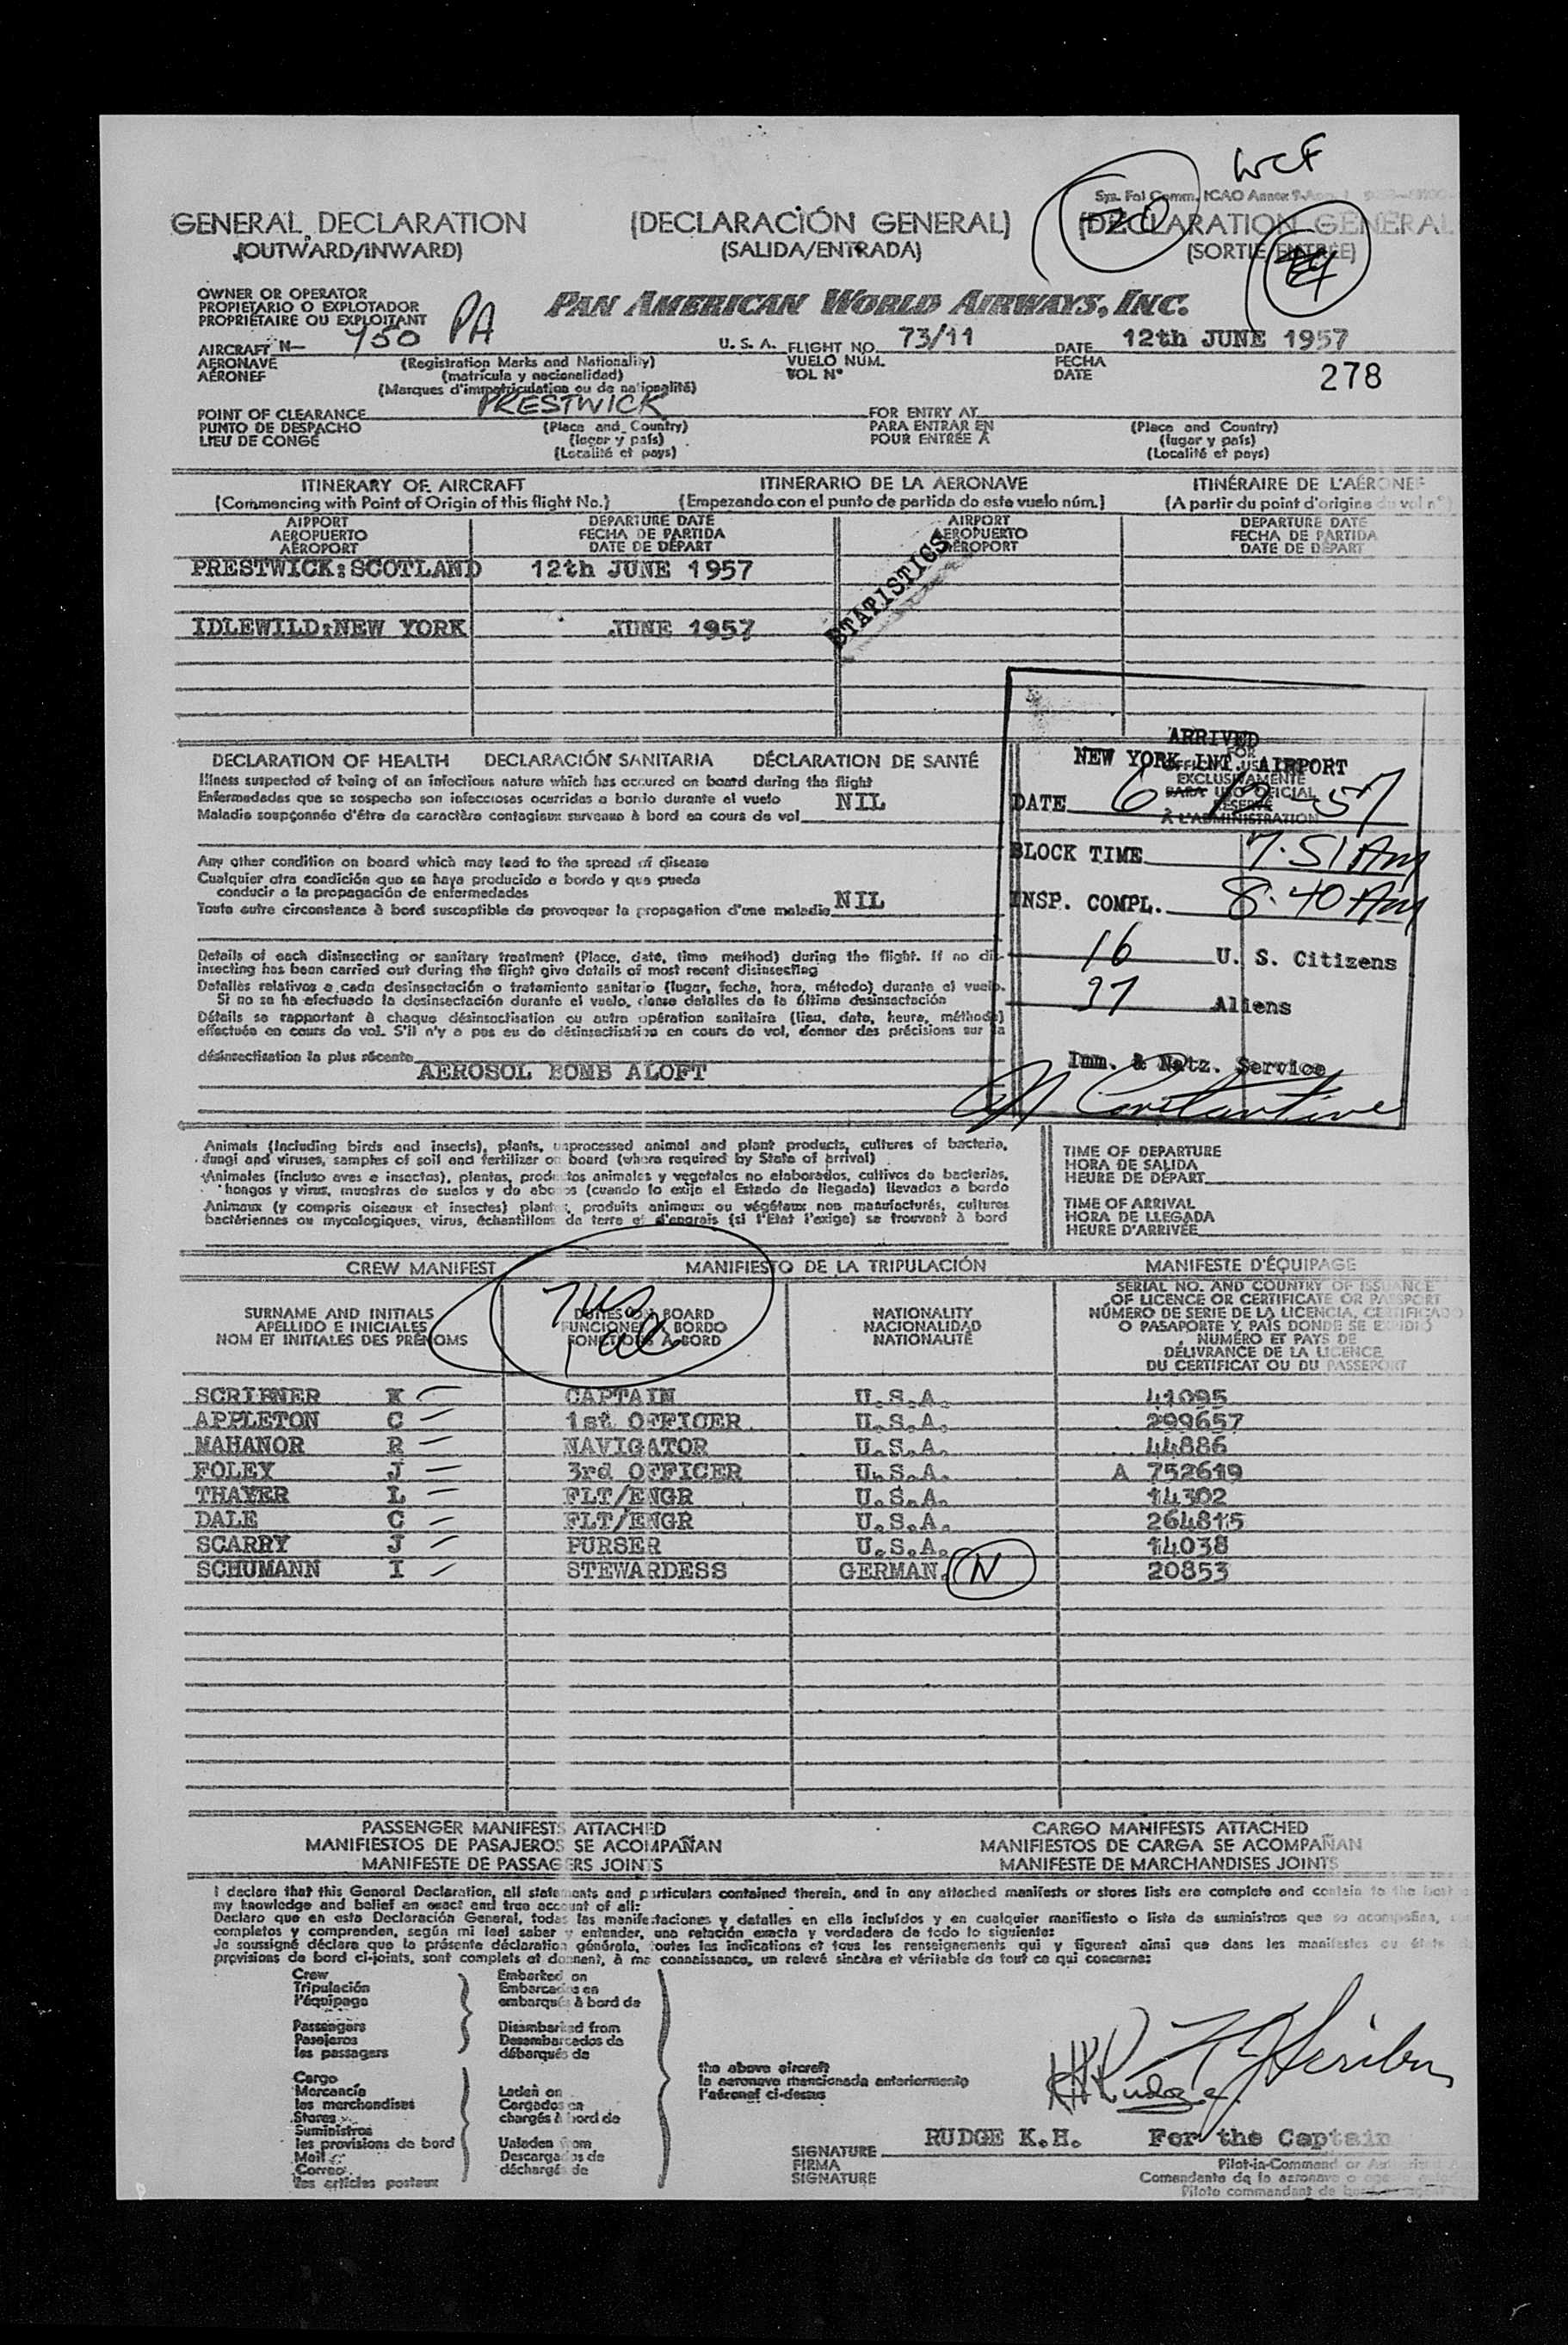 WCF
Sys. Fol Comm. ICAO Annex 9
GENERAL DECLARATION (DECLARACIÓN GENERAL) (DECLARATION GENERAL
(OUTWARD/INWARD) (SALIDA/ENTRADA) (SORTIE/ENTRÉE)
OWNER OR OPERATOR
PROPIETARIO O EXPLOTADOR
PROPRIÉTAIRE OU EXPLOITANT
PAN AMERICAN WORLD AIRWAYS, INC.
AIRCRAFT N— 750 PA U. S. A. FLIGHT NO. 73/11 DATE 12th JUNE 1957
AERONAVE (Registration Marks and Nationality) VUELO NUM. FECHA
AÉRONEF (matrícula y nacionalidad) VOL Nº DATE 278
(Marques d'immatriculation ou de nationalité)
POINT OF CLEARANCE PRESTWICK FOR ENTRY AT
PUNTO DE DESPACHO (Place and Country) PARA ENTRAR EN (Place and Country)
LIEU DE CONGÉ (lugar y país) POUR ENTRÉE À (lugar y país)
(Localité et pays) (Localité et pays)
ITINERARY OF AIRCRAFT ITINERARIO DE LA AERONAVE ITINÉRAIRE DE L'AÉRONEF
(Commencing with Point of Origin of this flight No.) (Empezando con el punto de partida de este vuelo núm.) (A partir du point d'origine du vol nº)
AIRPORT DEPARTURE DATE AIRPORT DEPARTURE DATE
AEROPUERTO FECHA DE PARTIDA AEROPUERTO FECHA DE PARTIDA
AÉROPORT DATE DE DÉPART AÉROPORT DATE DE DÉPART
PRESTWICK:SCOTLAND 12th JUNE 1957
STATISTICS
IDLEWILD:NEW YORK JUNE 1957
DECLARATION OF HEALTH DECLARACIÓN SANITARIA DÉCLARATION DE SANTÉ
Illness suspected of being of an infectious nature which has occured on board during the flight
Enfermedades que se sospecha son infecciosas ocurridas a bordo durante el vuelo NIL
Maladie soupçonnée d'être de caractère contagieux survenue à bord en cours de vol
Any other condition on board which may lead to the spread of disease
Cualquier otra condición que se haya producido a bordo y que pueda
conducir a la propagación de enfermedades
Toute autre circonstance à bord susceptible de provoquer la propagation d'une maladie NIL
Details of each disinsecting or sanitary treatment (Place, date, time method) during the flight. If no dis-
insecting has been carried out during the flight give details of most recent disinsecting
Detalles relativos a cada desinsectación o tratamiento sanitario (lugar, fecha, hora, método) durante el vuelo.
Si no se ha efectuado la desinsectación durante el vuelo, dense detalles de la última desinsectación
Détails se rapportant à chaque désinsectisation ou autre opération sanitaire (lieu, date, heure, méthode)
effectuée en cours de vol. S'il n'y a pas eu de désinsectisation en cours de vol, donner des précisions sur la
désinsectisation la plus récente
AEROSOL BOMB ALOFT
ARRIVED
NEW YORK INT. AIRPORT
FOR
OFFICIAL USE
EXCLUSIVAMENTE
PARA USO OFICIAL
RÉSERVÉ
À L'ADMINISTRATION
DATE 6-12-57
BLOCK TIME 7.51 Am
INSP. COMPL. 8.40 Am
16 U. S. Citizens
37 Aliens
Imm. & Natz. Service
Constantine
Animals (including birds and insects), plants, unprocessed animal and plant products, cultures of bacteria,
fungi and viruses, samples of soil and fertilizer on board (where required by State of arrival)
Animales (incluso aves e insectos), plantas, productos animales y vegetales no elaborados, cultivos de bacterias,
hongos y virus, muestras de suelos y de abonos (cuando lo exija el Estado de llegada) llevados a bordo
Animaux (y compris oiseaux et insectes) plantes, produits animaux ou végétaux non manufacturés, cultures
bactériennes ou mycologiques, virus, échantillons de terre et d'engrais (si l'Etat l'exige) se trouvant à bord
TIME OF DEPARTURE
HORA DE SALIDA
HEURE DE DÉPART
TIME OF ARRIVAL
HORA DE LLEGADA
HEURE D'ARRIVÉE
CREW MANIFEST MANIFIESTO DE LA TRIPULACIÓN MANIFESTE D'ÉQUIPAGE
SURNAME AND INITIALS
APELLIDO E INICIALES
NOM ET INITIALES DES PRÉNOMS
DUTIES ON BOARD
FUNCIONES A BORDO
FONCTIONS À BORD
NATIONALITY
NACIONALIDAD
NATIONALITÉ
SERIAL NO. AND COUNTRY OF ISSUANCE
OF LICENCE OR CERTIFICATE OR PASSPORT
NÚMERO DE SERIE DE LA LICENCIA, CERTIFICADO
O PASAPORTE Y PAÍS DONDE SE EXPIDIÓ
NUMÉRO ET PAYS DE
DÉLIVRANCE DE LA LICENCE,
DU CERTIFICAT OU DU PASSEPORT
SCRIBNER K CAPTAIN U.S.A. 41095
APPLETON C 1st OFFICER U.S.A. 299657
MAHANOR R NAVIGATOR U.S.A. 44886
FOLEY J 3rd OFFICER U.S.A. A 752619
THAYER L FLT/ENGR U.S.A. 14302
DALE C FLT/ENGR U.S.A. 264815
SCARRY J PURSER U.S.A. 14038
SCHUMANN I STEWARDESS GERMAN. N 20853
PASSENGER MANIFESTS ATTACHED CARGO MANIFESTS ATTACHED
MANIFIESTOS DE PASAJEROS SE ACOMPAÑAN MANIFIESTOS DE CARGA SE ACOMPAÑAN
MANIFESTE DE PASSAGERS JOINTS MANIFESTE DE MARCHANDISES JOINTS
I declare that this General Declaration, all statements and particulars contained therein, and in any attached manifests or stores lists are complete and contain to the best
my knowledge and belief an exact and true account of all:
Declaro que en esta Declaración General, todas las manifestaciones y detalles en ella incluídos y en cualquier manifiesto o lista de suministros que se acompañan,
completos y comprenden, según mi leal saber y entender, una relación exacta y verdadera de todo lo siguiente:
Je soussigné déclare que la présente déclaration générale, toutes les indications et tous les renseignements qui y figurent ainsi que dans les manifestes ou états
provisions de bord ci-joints, sont complets et donnent, à ma connaissance, un relevé sincère et véritable de tout ce qui concerne:
Crew
Tripulación
l'équipage
Passengers
Pasajeros
les passagers
Cargo
Mercancía
les marchandises
Stores
Suministros
les provisions de bord
Mail
Correo
les articles postaux
Embarked on
Embarcados en
embarqués à bord de
Disembarked from
Desembarcados de
débarqués de
Laden on
Cargados en
chargés à bord de
Unladen from
Descargados de
déchargé de
the above aircraft
la aeronave mencionada anteriormente
l'aéronef ci-dessus
KHRudge
KJScribner
SIGNATURE RUDGE K.H. For the Captain
FIRMA
SIGNATURE
Pilot-in-Command or
Comandante de la aeronave o
Pilote commandant de